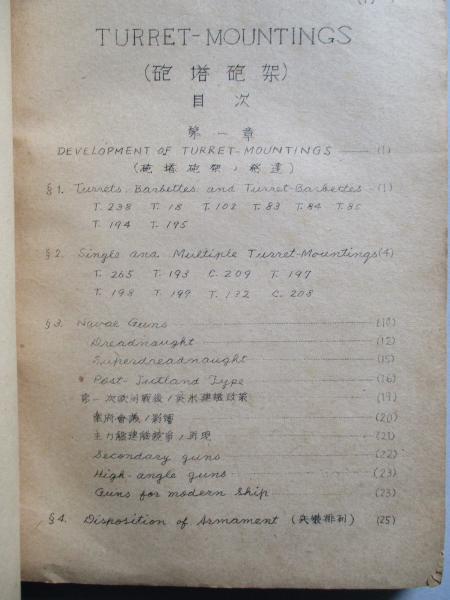 TURRET-MOUNTINGS
(砲塔砲架)
目次
第一章
DEVELOPMENT OF TURRET-MOUNTINGS (1)
(砲塔砲架ノ発達)
§1. Turrets, Barbettes and Turret-Barbettes (1)
T. 238 T. 18 T. 102 T. 83 T. 84 T. 85
T. 194 T. 195
§2. Single and Multiple Turret-Mountings (4)
T. 265 T. 193 C. 209 T. 197
T. 198 T. 199 T. 132 C. 208
§3. Naval Guns (10)
Dreadnaught (12)
Superdreadnaught (15)
Post-Jutland Type (16)
第一次欧州戦後ノ英米建艦政策 (19)
会議ノ影響 (20)
主力艦建艦競争ノ再現 (21)
Secondary guns (22)
High-angle guns (23)
Guns for modern ship (23)
§4. Disposition of Armament (兵装排列) (25)